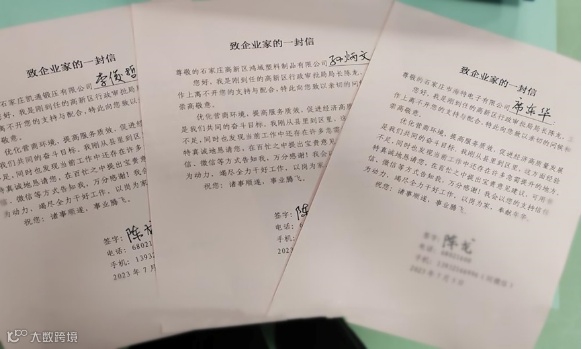 致企业家的一封信
石家庄凯通锻压有限公司李俊哲
您好，我是刚到任的高新区行政审批局局长陈龙
作上离不开您的支持与配合，特此向您致
崇高敬意。
优化营商环境，提高服务质效，促进
我们共同的奋斗目标，我刚从县里到
不足，同时也发现当前工作中还存在
特真诚地恳请您，在百忙之中提出宝
信、微信等方式告知我，万分感谢！
为动力，竭尽全力干好工作，以岗
祝您：诸事顺遂，事业腾飞。
签字：陈龙
电话：6802
手机：1393
2023年7月
致企业家的一封信
尊敬的石家庄高新区鸿城塑料制品有限公司孙炳文
您好，我是刚到任的高新区行政审批局局长陈龙，
作上离不开您的支持与配合，特此向您致以亲切的问候
崇高敬意。
优化营商环境，提高服务质效，促进经济高
是我们共同的奋斗目标，我刚从县里到区里，
不足，同时也发现当前工作中还存在许多
特真诚地恳请您，在百忙之中提出宝贵意
信、微信等方式告知我，万分感谢！我会
为动力，竭尽全力干好工作，以岗为家，
祝您：诸事顺遂，事业腾飞。
签字：陈
电话：68021
手机：13932
2023年7
致企业家的一封信
尊敬的石家庄市
特电子有限公司
您好，我是刚到任的高新区行政审批局局长陈龙，
作上离不开您的支持与配合，特此向您致以亲切的问候和
崇高敬意。
优化营商环境，提高服务质效，促进经济高质量发展
是我们共同的奋斗目标，我刚从县里到区里，这方面经验
不足，同时也发现当前工作中还存在许多急需提升的地方，
特真诚地恳请您，在百忙之中提出宝贵意见建议，可用
信、微信等方式告知我，万分感谢！我会以您的支持信任
为动力，竭尽全力干好工作，以岗为家，奉献
祝您：诸事顺遂，事业腾飞。
签字：陈龙
电话：
手机：
2023年7月
大数跨境